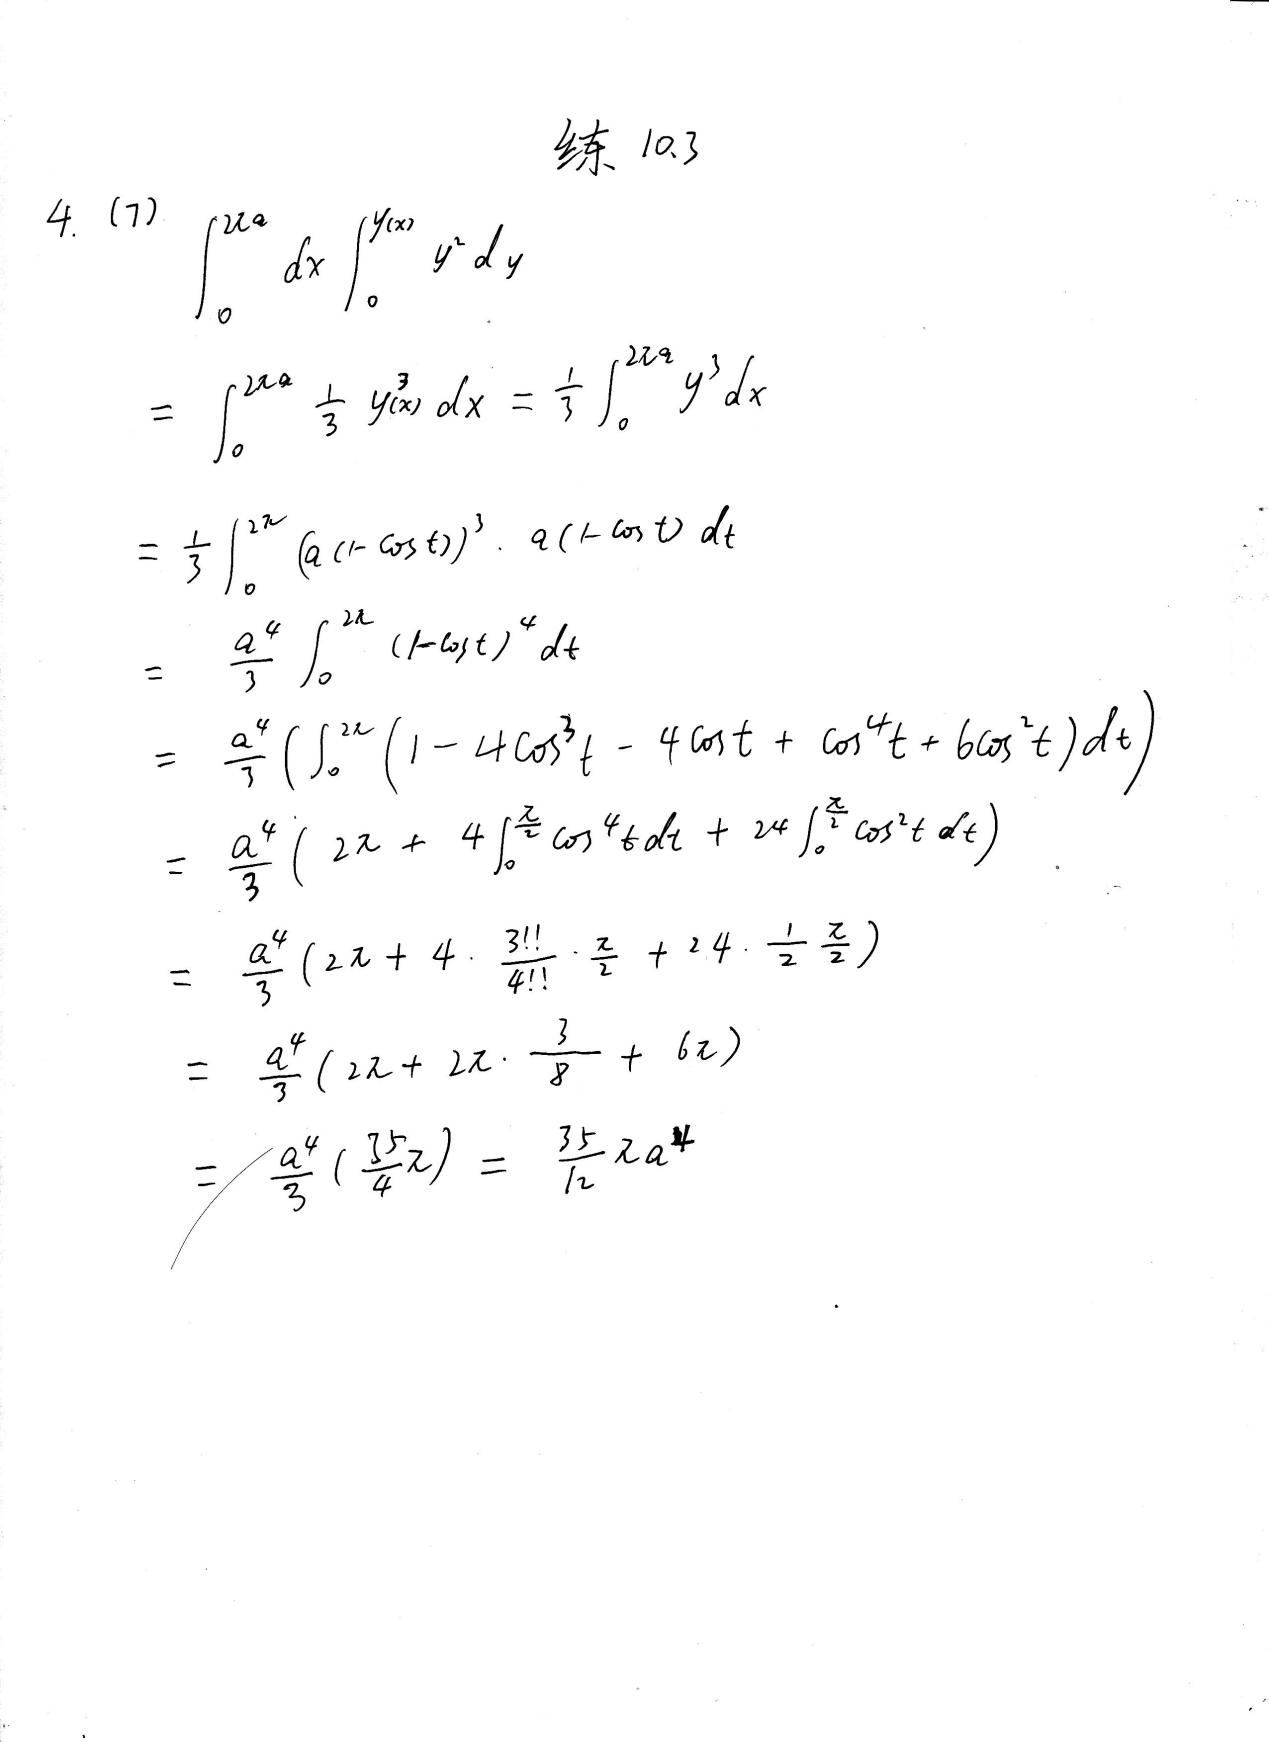 练 10.3
4. (7) ∫₀^{2πa} dx ∫₀^{y(x)} y² dy
= ∫₀^{2πa} 1/3 y³(x) dx = 1/3 ∫₀^{2πa} y³ dx
= 1/3 ∫₀^{2π} (a(1-cost))³ · a(1-cost) dt
= a⁴/3 ∫₀^{2π} (1-cost)⁴ dt
= a⁴/3 (∫₀^{2π} (1 - 4cos³t - 4cost + cos⁴t + 6cos²t) dt)
= a⁴/3 ( 2π + 4∫₀^{π/2} cos⁴t dt + 24 ∫₀^{π/2} cos²t dt)
= a⁴/3 (2π + 4 · 3!!/4!! · π/2 + 24 · 1/2 π/2)
= a⁴/3 (2π + 2π · 3/8 + 6π)
= a⁴/3 (35/4 π) = 35/12 πa⁴